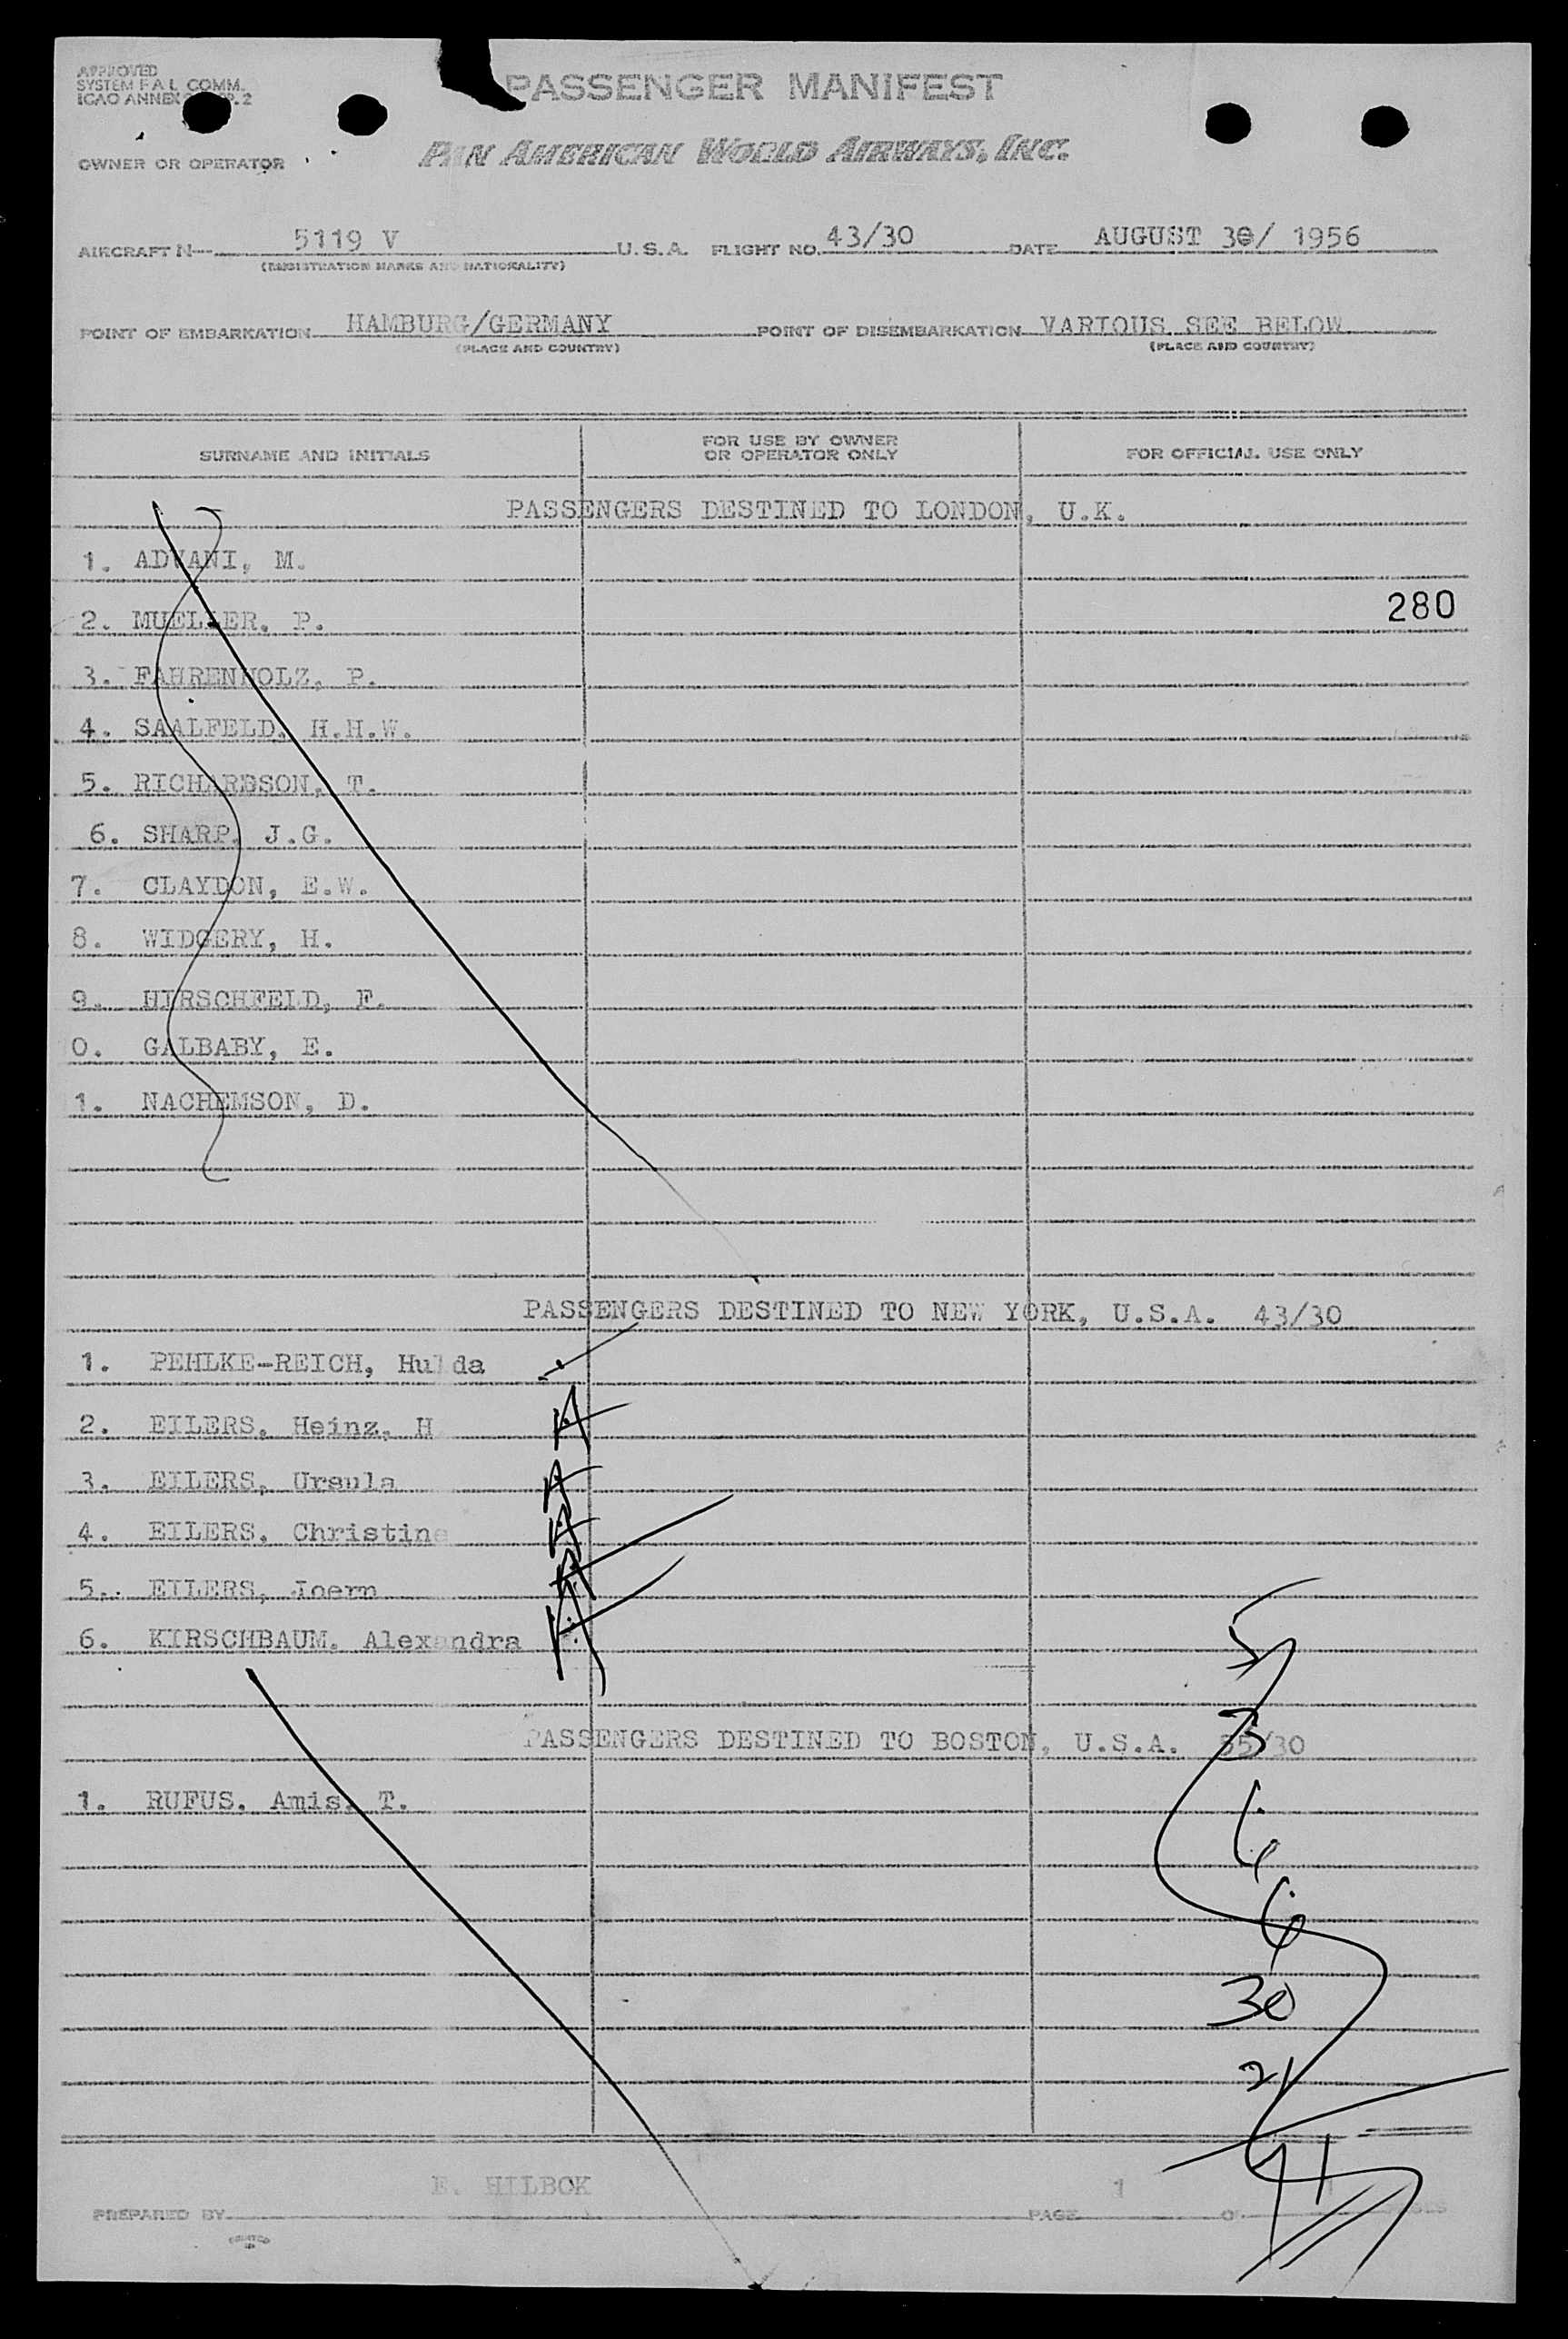 APPROVED
SYSTEM F A L COMM.
ICAO ANNEX
PASSENGER MANIFEST
OWNER OR OPERATOR
PAN AMERICAN WORLD AIRWAYS, INC.
AIRCRAFT N— 5119 V U. S. A. FLIGHT NO. 43/30 DATE AUGUST 30/ 1956
(REGISTRATION MARKS AND NATIONALITY)
POINT OF EMBARKATION HAMBURG/GERMANY POINT OF DISEMBARKATION VARIOUS SEE BELOW
(PLACE AND COUNTRY) (PLACE AND COUNTRY)
SURNAME AND INITIALS FOR USE BY OWNER OR OPERATOR ONLY FOR OFFICIAL USE ONLY
PASSENGERS DESTINED TO LONDON, U.K.
1. ADVANI, M.
280
2. MUELLER, P.
3. FAHRENHOLZ, P.
4. SAALFELD, H.H.W.
5. RICHARDSON, T.
6. SHARP, J.G.
7. CLAYDON, E.W.
8. WIDGERY, H.
9. HIRSCHFELD, F.
0. GALBABY, E.
1. NACHEMSON, D.
PASSENGERS DESTINED TO NEW YORK, U.S.A. 43/30
1. PEHLKE-REICH, Hulda
2. EILERS, Heinz, H A
3. EILERS, Ursula A
4. EILERS, Christine A
5. EILERS, Joern A
6. KIRSCHBAUM, Alexandra A
5
PASSENGERS DESTINED TO BOSTON, U.S.A. 35/30
3
1. RUFUS, Amis, T.
6
6
30
21
71
E. HILBCK
PREPARED BY PAGE 1 OF 1